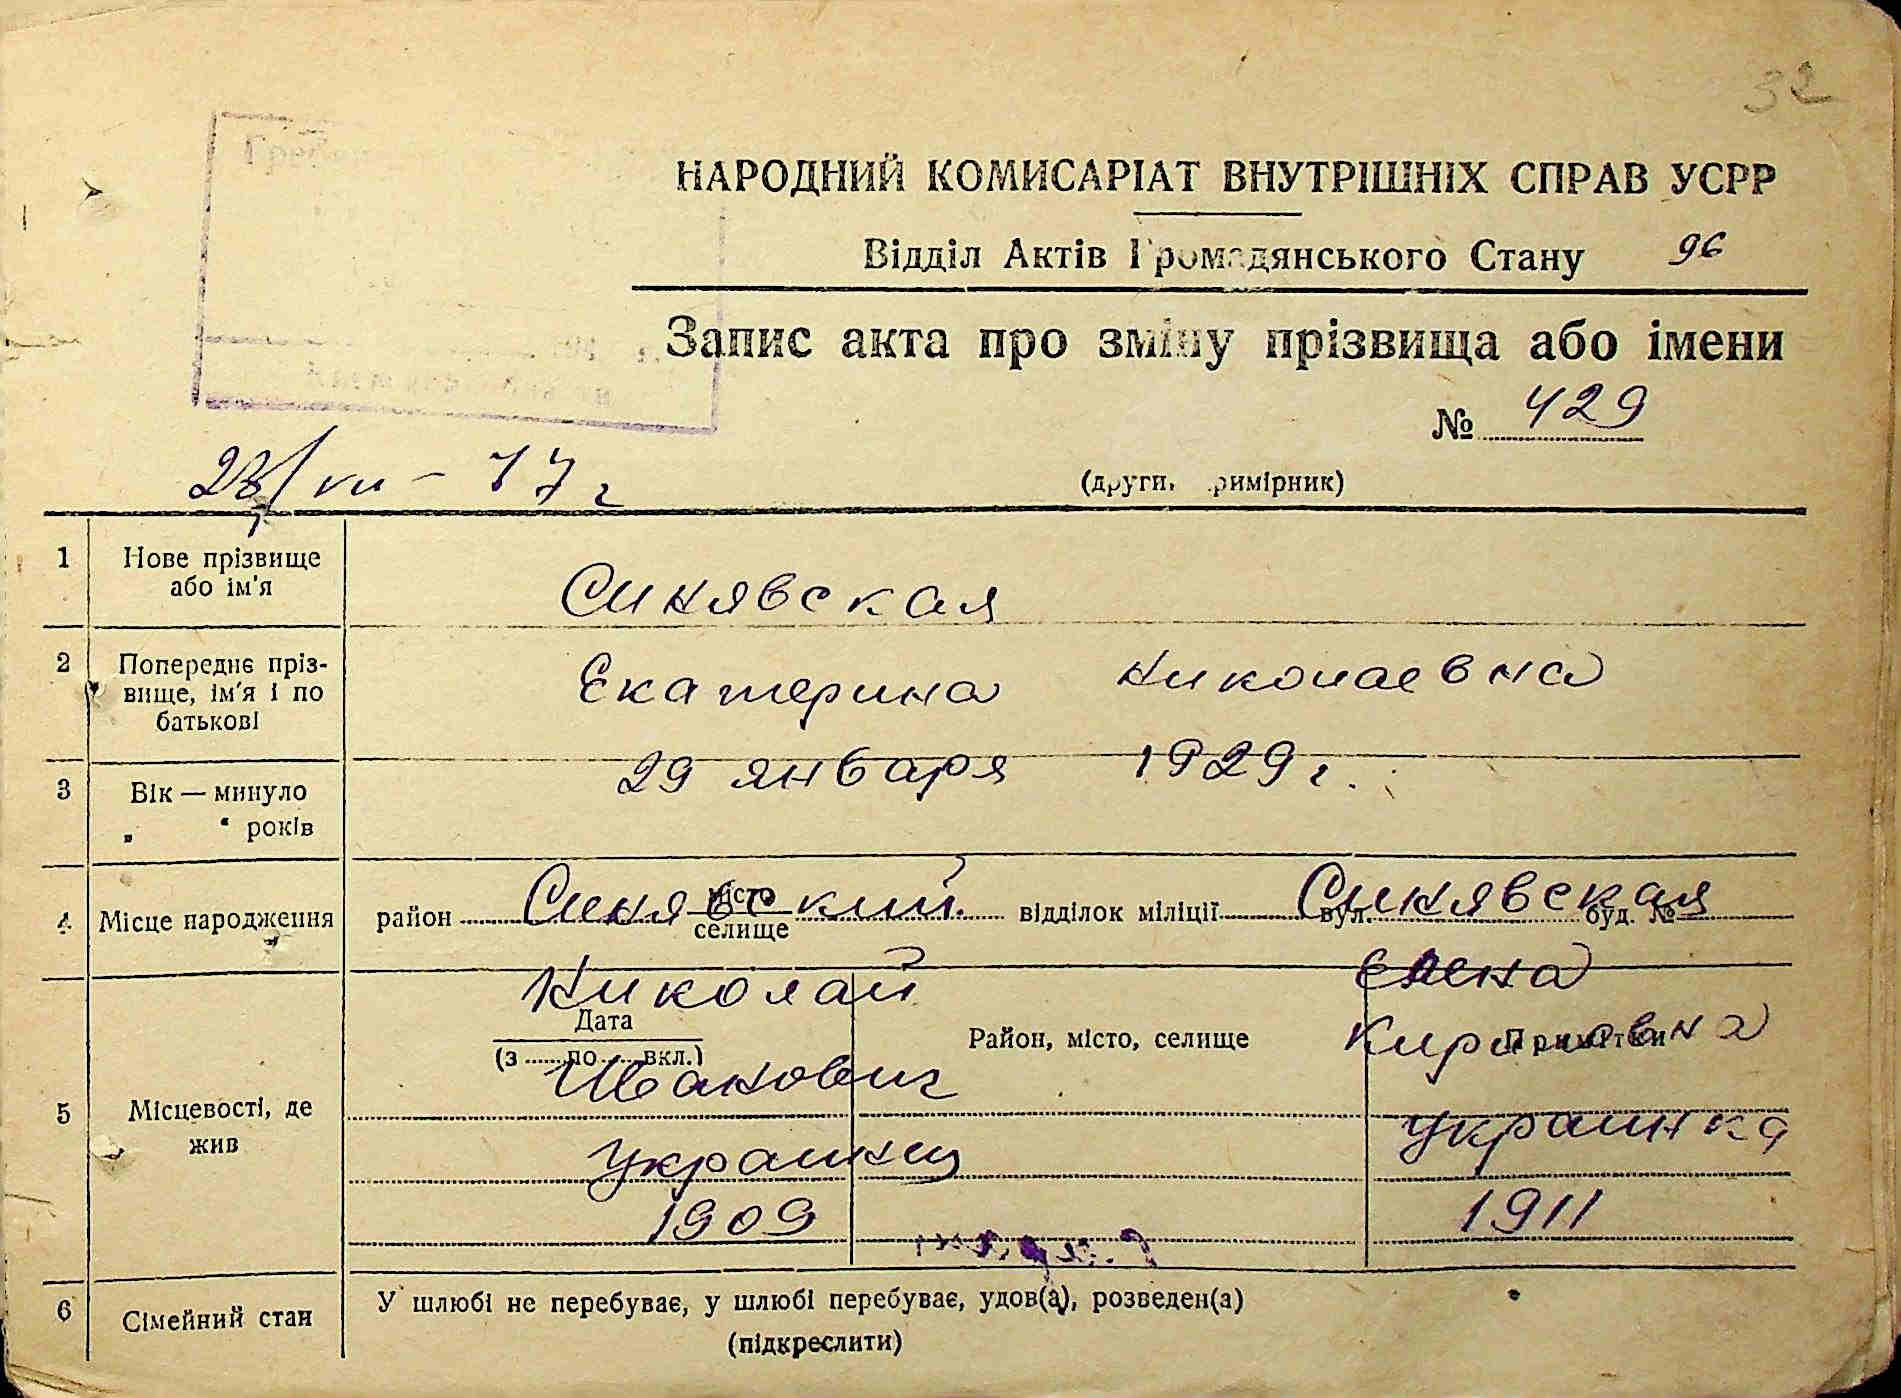 32
НАРОДНИЙ КОМИСАРІАТ ВНУТРІШНІХ СПРАВ УСРР
Відділ Актів Громадянського Стану 96
Запис акта про зміну прізвища або імени
№ 429
28/VII - 77 г
(други. римірник)
1 Нове прізвище або ім'я
Синявская
2 Попереднє прізвище, ім'я і по батькові
Екатерина Николаевна
29 января 1929 г.
3 Вік — минуло
„ “ років
4 Місце народження район місто селище відділок міліції вул. буд. №
Синявский Синявская
Николай Елена
Дата
(з ...... по ...... вкл.)
Район, місто, селище
Примітки
Иванович Кириловна
5 Місцевості, де жив
украинец украинка
1909 1911
6 Сімейний стан
У шлюбі не перебуває, у шлюбі перебуває, удов(а), розведен(а)
(підкреслити)